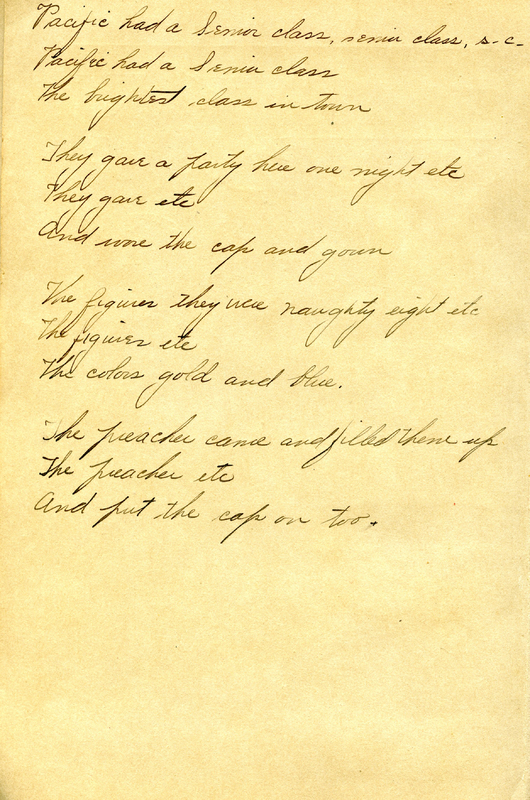 Pacific had a Senior class, senior class, s-c-
Pacific had a Senior class
The brightest class in town
They gave a party here one night etc
They gave etc
And wore the cap and gown
The figures they were naughty eight etc
The figures etc
The colors gold and blue.
The preacher came and filled them up
The preacher etc
And put the cap on too.